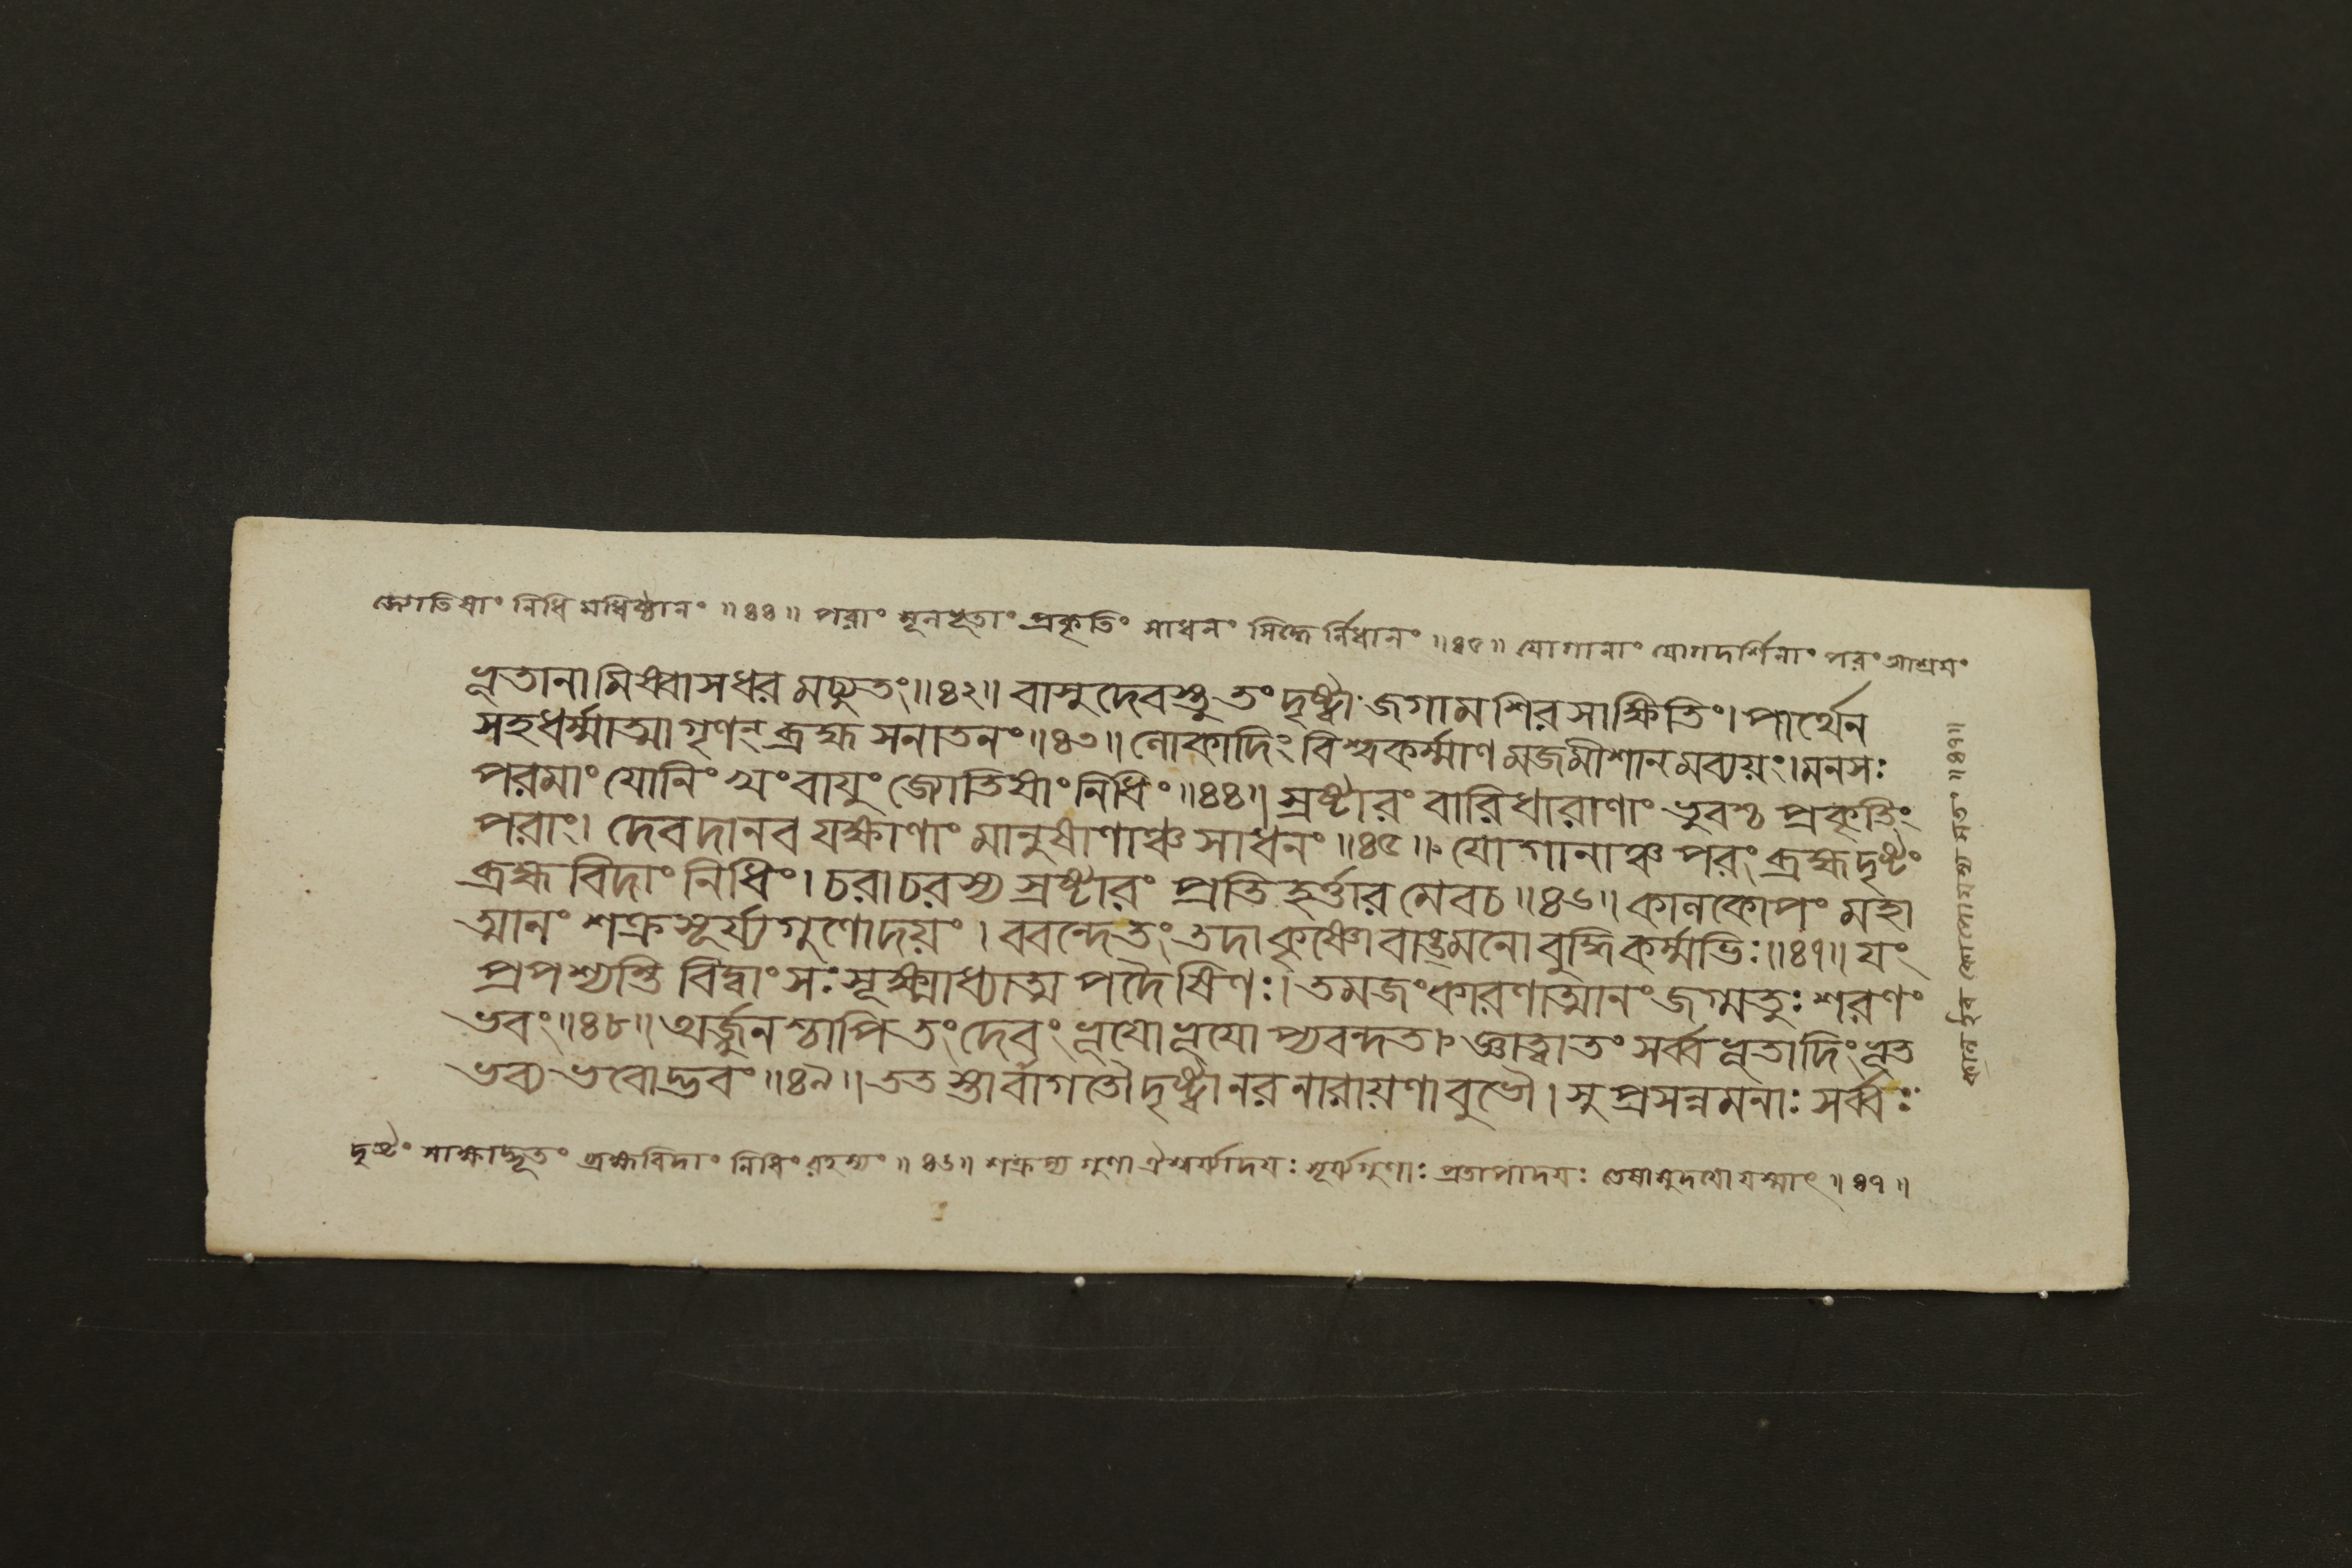 জ্যোতিষাং নিধিমধিষ্ঠানং ॥৪৪॥ পরাং মূলভূতাং প্রকৃতিং সাধনং সিদ্ধের্নিধানং ॥৪৫॥ যোগানাং যোগদর্শিনাং পরং আশ্রয়ং
ভূতানামিষ্বাসধরমচ্যুতং॥৪২॥ বাসুদেবস্তু তং দৃষ্ট্বা জগাম শিরসা ক্ষিতিং। পার্থেন
সহধর্ম্মাত্মা গৃণন্ ব্রহ্ম সনাতনং॥৪৩॥ লোকাদিং বিশ্বকর্ম্মাণমজমীশানমব্যয়ং। মনসঃ
পরমাং যোনিং খং বায়ুং জোতিষাং নিধিং॥৪৪॥ স্রষ্টারং বারিধারাণাং ভুবশ্চ প্রকৃতিং
পরাং। দেবদানব যক্ষাণাং মানুষাণাঞ্চ সাধনং॥৪৫॥ যোগানাঞ্চ পরং ব্রহ্ম দৃষ্টং
ব্রহ্মবিদাং নিধিং। চরাচরস্য স্রষ্টারং প্রতিহর্ত্তারমেবচ॥৪৬॥ কালকোপং মহা
ত্মানং শক্রসূর্য্যগুণোদয়ং। ববন্দে তং তদা কৃষ্ণো বাঙ্মনোবুদ্ধিকর্ম্মভিঃ॥৪৭॥ যং
প্রপশ্যন্তি বিদ্বাংসঃ সূক্ষ্মাধ্যাত্মপদৈষিণঃ। তমজং কারণাত্মানং জগ্মতুঃ শরণং
ভবং॥৪৮॥ অর্জ্জুনশ্চাপি তং দেবং ভূয়ো ভূয়োপ্যবন্দত। জ্ঞাত্বা তং সর্ব্বভূতাদিং ভূত
ভব্যভবোদ্ভবং॥৪৯॥ ততস্তাবাগতৌ দৃষ্ট্বা নরনারায়ণাবুভৌ। সুপ্রসন্নমনাঃ সর্ব্বঃ
দৃষ্টং সাক্ষাদ্ভূতং ব্রহ্মবিদাং নিধিং রহস্যং ॥৪৬॥ শক্রস্য গুণা ঐশ্বর্য্যাদয়ঃ সূর্য্যগুণাঃ প্রতাপাদয়ঃ তেষামুদয়ো যস্মাৎ ॥৪৭॥